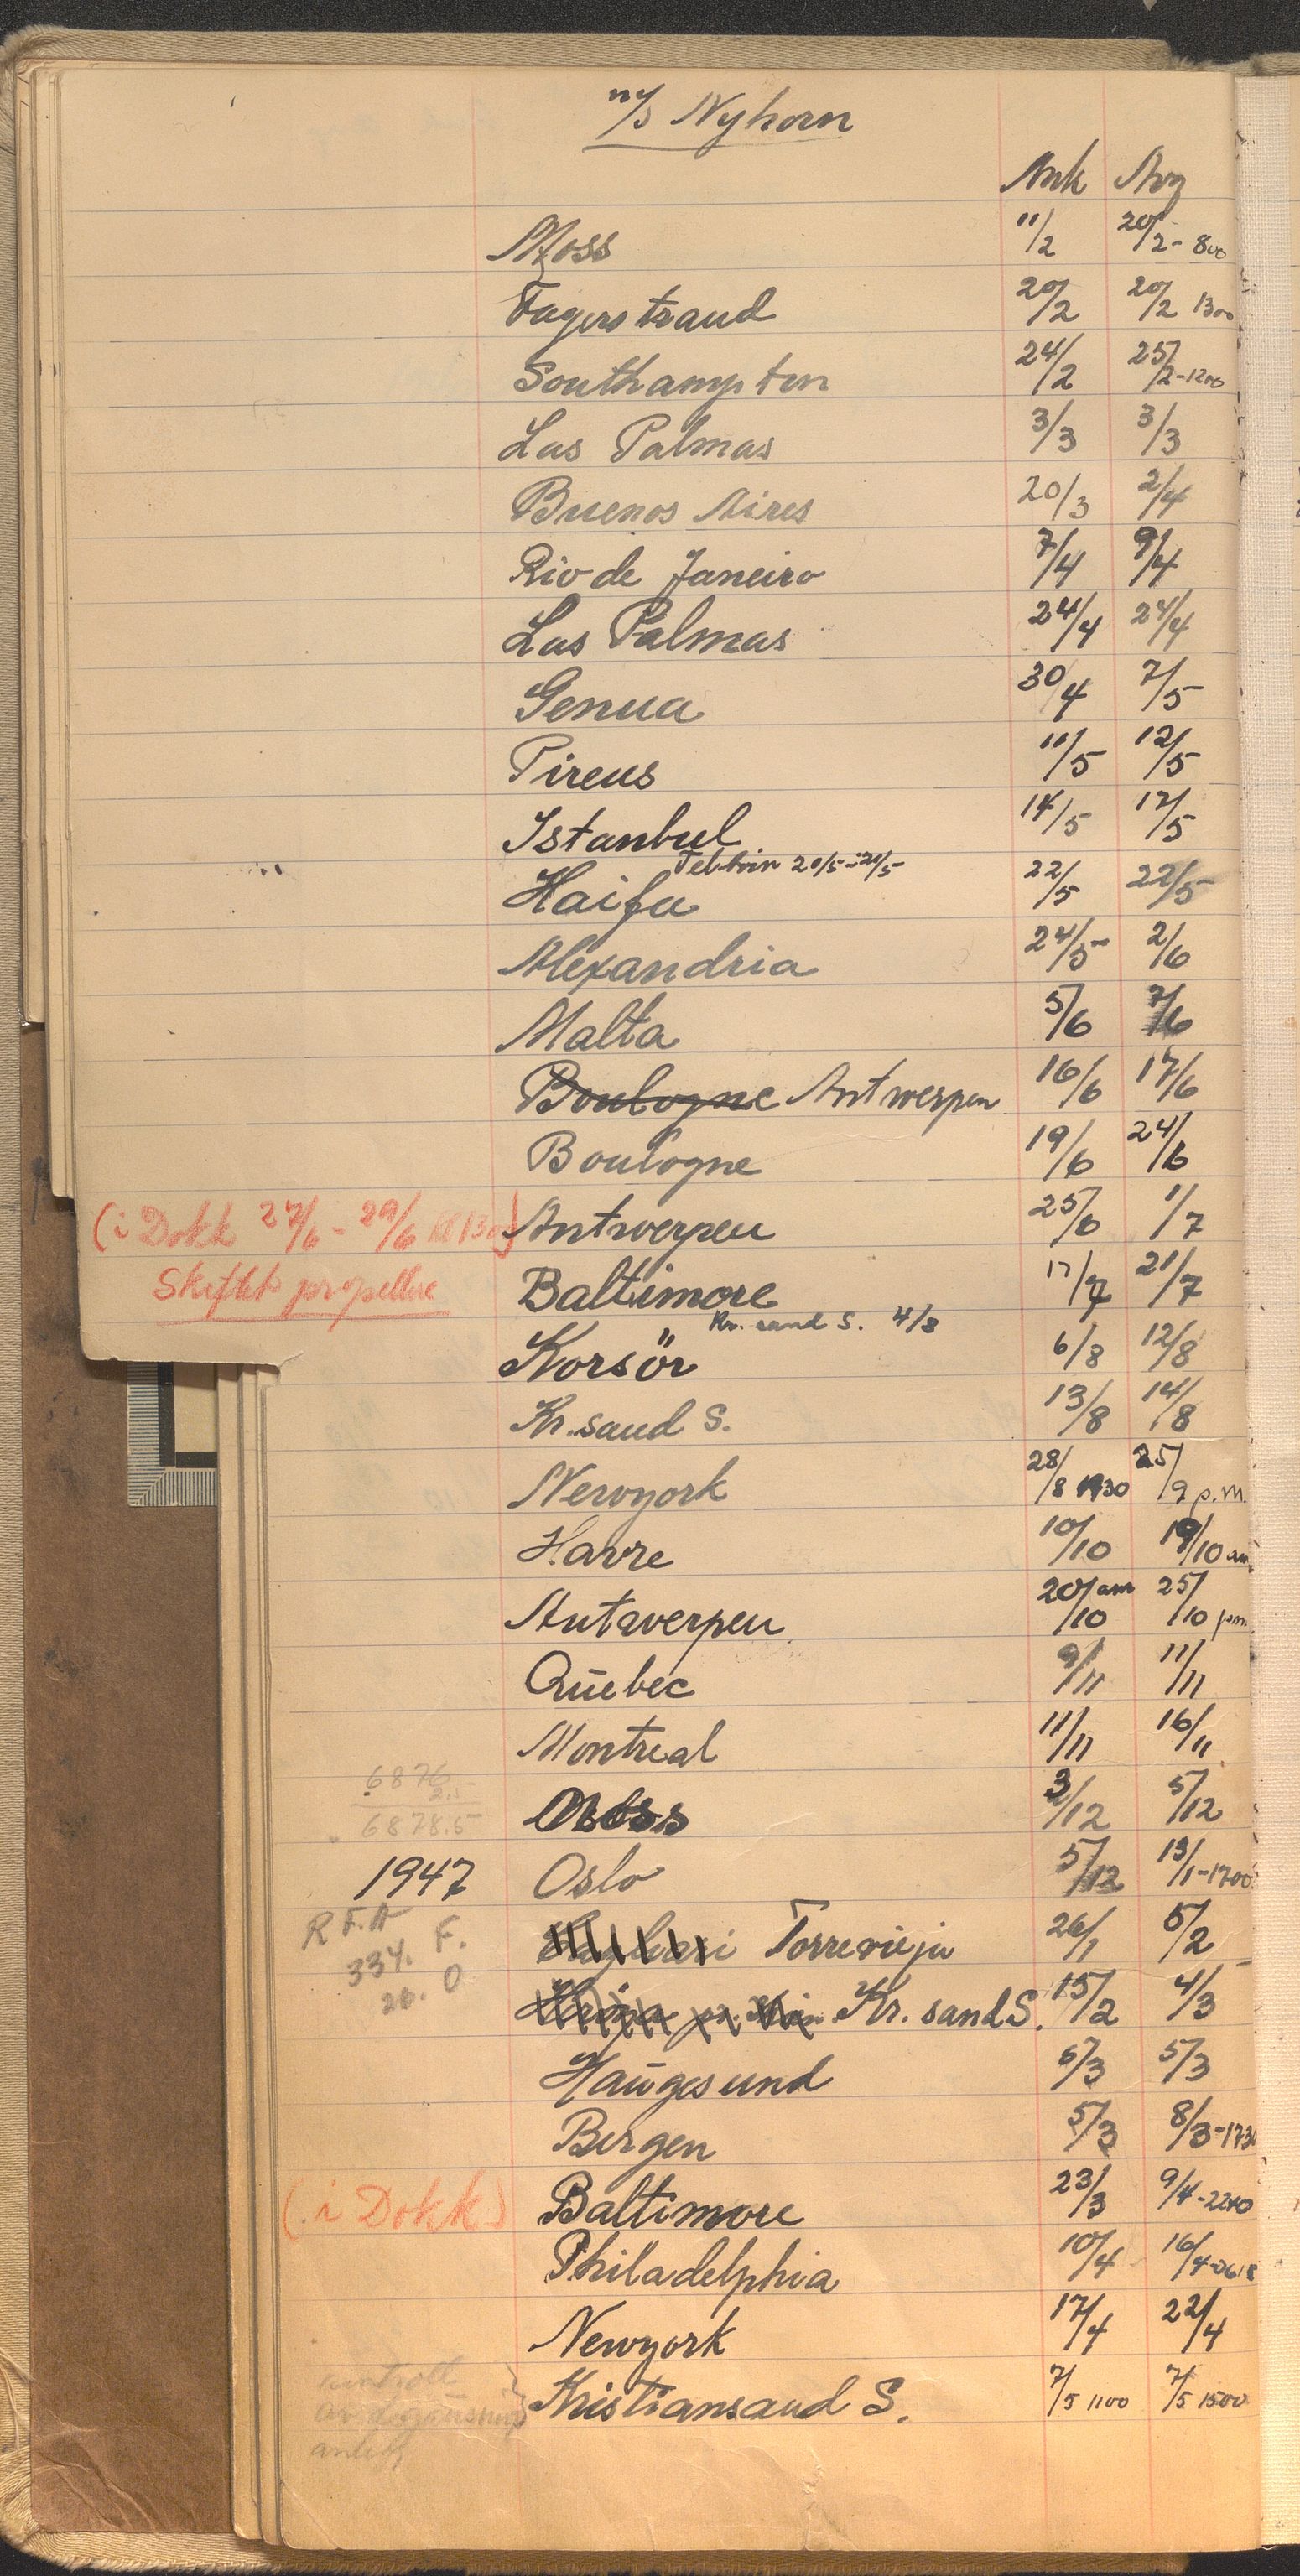 m/s Nyhorn
Ank Avg
Moss 11/2 20/2 - 800
Fagerstrand 20/2 20/2 1300
Southampton 24/2 25/2 - 1200
Las Palmas 3/3 3/3
Buenos Aires 20/3 2/4
Rio de Janeiro 7/4 9/4
Las Palmas 24/4 24/4
Genua 30/4 7/5
Pireus 11/5 12/5
Istanbul 14/5 17/5
20/5 - 21/5
Haifa 22/5 22/5
Alexandria 24/5 2/6
Malta 5/6 7/6
Boulogne Antwerpen 16/6 17/6
Boulogne 19/6 24/6
(i Dokk 27/6 - 29/6 kl 1300) Antwerpen 25/6 1/7
Skiftet propeller Baltimore 17/7 21/7
Kr. sand S. 4/8
Korsör 6/8 12/8
Kr. sand S. 13/8 14/8
Newyork 28/8 1930 25/9 p.m.
Havre 10/10 19/10 am
Antwerpen 20/10 am 25/10 pm
Quebec 9/11 11/11
Montreal 11/11 16/11
6876
2.5
6878.5 Moss 3/12 5/12
1947 Oslo 5/12 13/1 - 1700
R F.A Torrevieja 26/1 5/2
334. F.
26. O Kr. sand S. 15/2 4/3
Haugesund 5/3
Bergen 5/3 8/3 - 1730
(i Dokk) Baltimore 23/3 9/4 - 2240
Philadelphia 10/4 16/4 - 0618
Newyork 17/4 22/4
Kristiansand S. 7/5 1100 7/5 1500